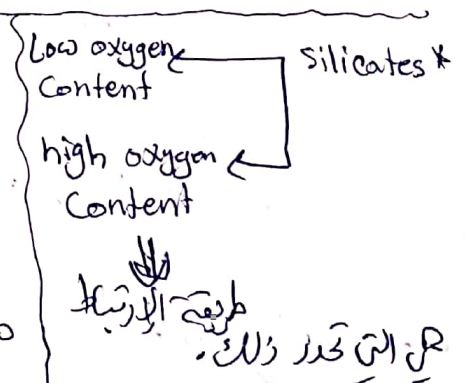 Silicates *
Low oxygen
Content
high oxygen
Content
طريقة الارتباط
هي التي تحدد ذلك.